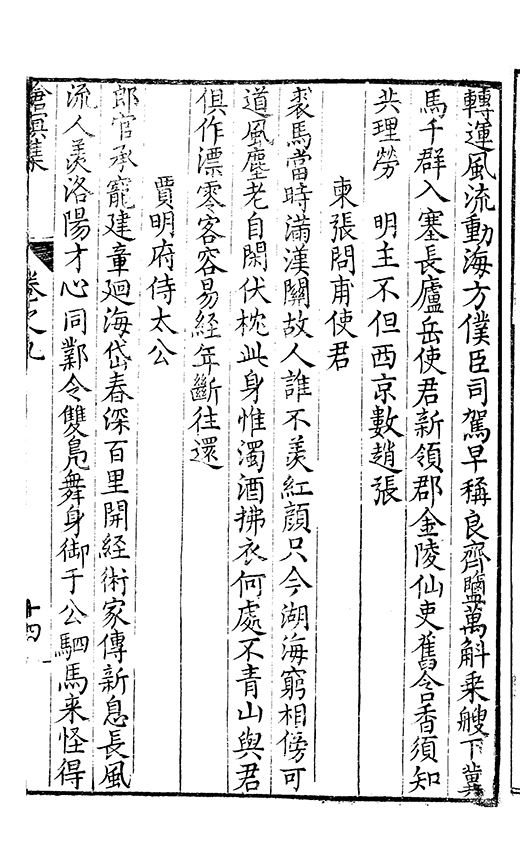 轉運風流動海方僕臣司駕早稱良齊鹽萬斛乘艘下冀
馬千群入塞長廬岳使君新領郡金陵仙吏舊含香須知
共理勞　明主不但西京數趙張
柬張問甫使君
裘馬當時滿漢關故人誰不羨紅顏只今湖海窮相傍可
道風塵老自閑伏枕此身惟濁酒拂衣何處不青山與君
俱作漂零客容易経年斷往還
賈明府侍太公
郎官承寵建章廻海岱春深百里開経術家傳新息長風
流人羨洛陽才心同鄴令雙鳧舞身御于公駟馬来怪得
滄溟集
卷之九
十四